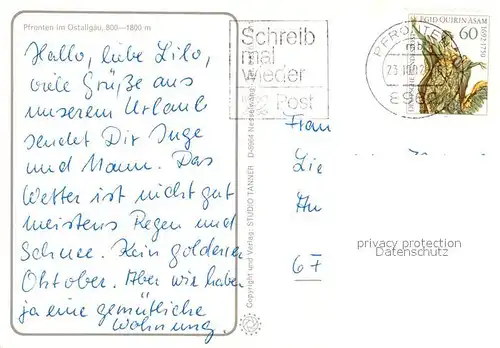 Pfronten im Ostallgäu, 800—1800 m
Hallo, liebe Lilo,
viele Grüße aus
unserem Urlaub
sendet Dir Inge
und Mann. Das
Wetter ist nicht gut
meistens Regen und
Schnee. Kein goldener
Oktober. Aber wir haben
ja eine gemütliche
Wohnung.
Copyright und Verlag: STUDIO TANNER D-8964 Nesselwang
Schreib
mal
wieder
Post
PFRONTEN
COSMAS EGID QUIRIN ASAM
60
1692-1750
DEUTSCHE BUNDESPOST
Frau
Lie
An
67
privacy protection
Datenschutz